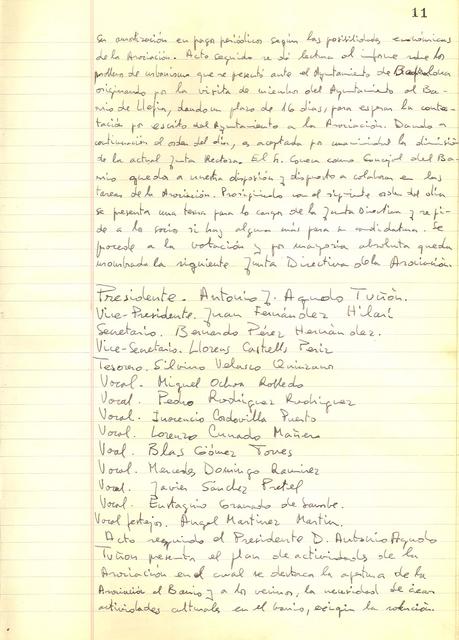 11
su amortización en pagos periódicos según las posibilidades económicas
de la Asociación. Acto seguido se dá lectura al informe sobre los
problemas de urbanismo que se presentó ante el Ayuntamiento de Badalona
originando por la visita de miembros del Ayuntamiento al Ba-
rrio de Llefiá, dando un plazo de 16 dias, para esperar la contes-
tación por escrito del Ayuntamiento a la Asociación. Dando a
continuación el orden del día, es aceptada por unanimidad la dimisión
de la actual Junta Rectora. El Sr. como Concejal del Ba-
rrio queda a nuestra disposición y dispuesto a colaborar en las
tareas de la Asociación. Prosiguiendo con el siguiente orden del dia
se presenta una terna para los cargos de la Junta Directiva y se pi-
de a los socios si hay alguno más para su candidatura. Se
procede a la votación y por mayoria absoluta queda
nombrada la siguiente Junta Directiva de la Asociación.
Presidente. Antonio J. Agudo Tuñón.
Vice-Presidente. Juan Fernández Hilari
Secretario. Bernardo Pérez Hernández.
Vice-Secretario. Llorens Castells Periz
Tesorero. Silvino Velasco Quinzano
Vocal. Miguel Ochoa Robledo
Vocal. Pedro Rodríguez Rodríguez
Vocal. Inocencio Cordovilla Puerto
Vocal. Lorenzo Cunado Mañero
Vocal. Blas Gómez Torres
Vocal. Mercedes Domingo Ramirez
Vocal. Javier Sánchez Pretel
Vocal. Eustaquio Granado de
Vocal festejos. Angel Martinez Martin.
Acto seguido el Presidente D. Antonio Agudo
Tuñon presenta el plan de actividades de la
Asociación en el cual se destaca la apertura de la
Asociación al Barrio y a los vecinos, la necesidad de crear
actividades culturales en el barrio, exigir la solución.